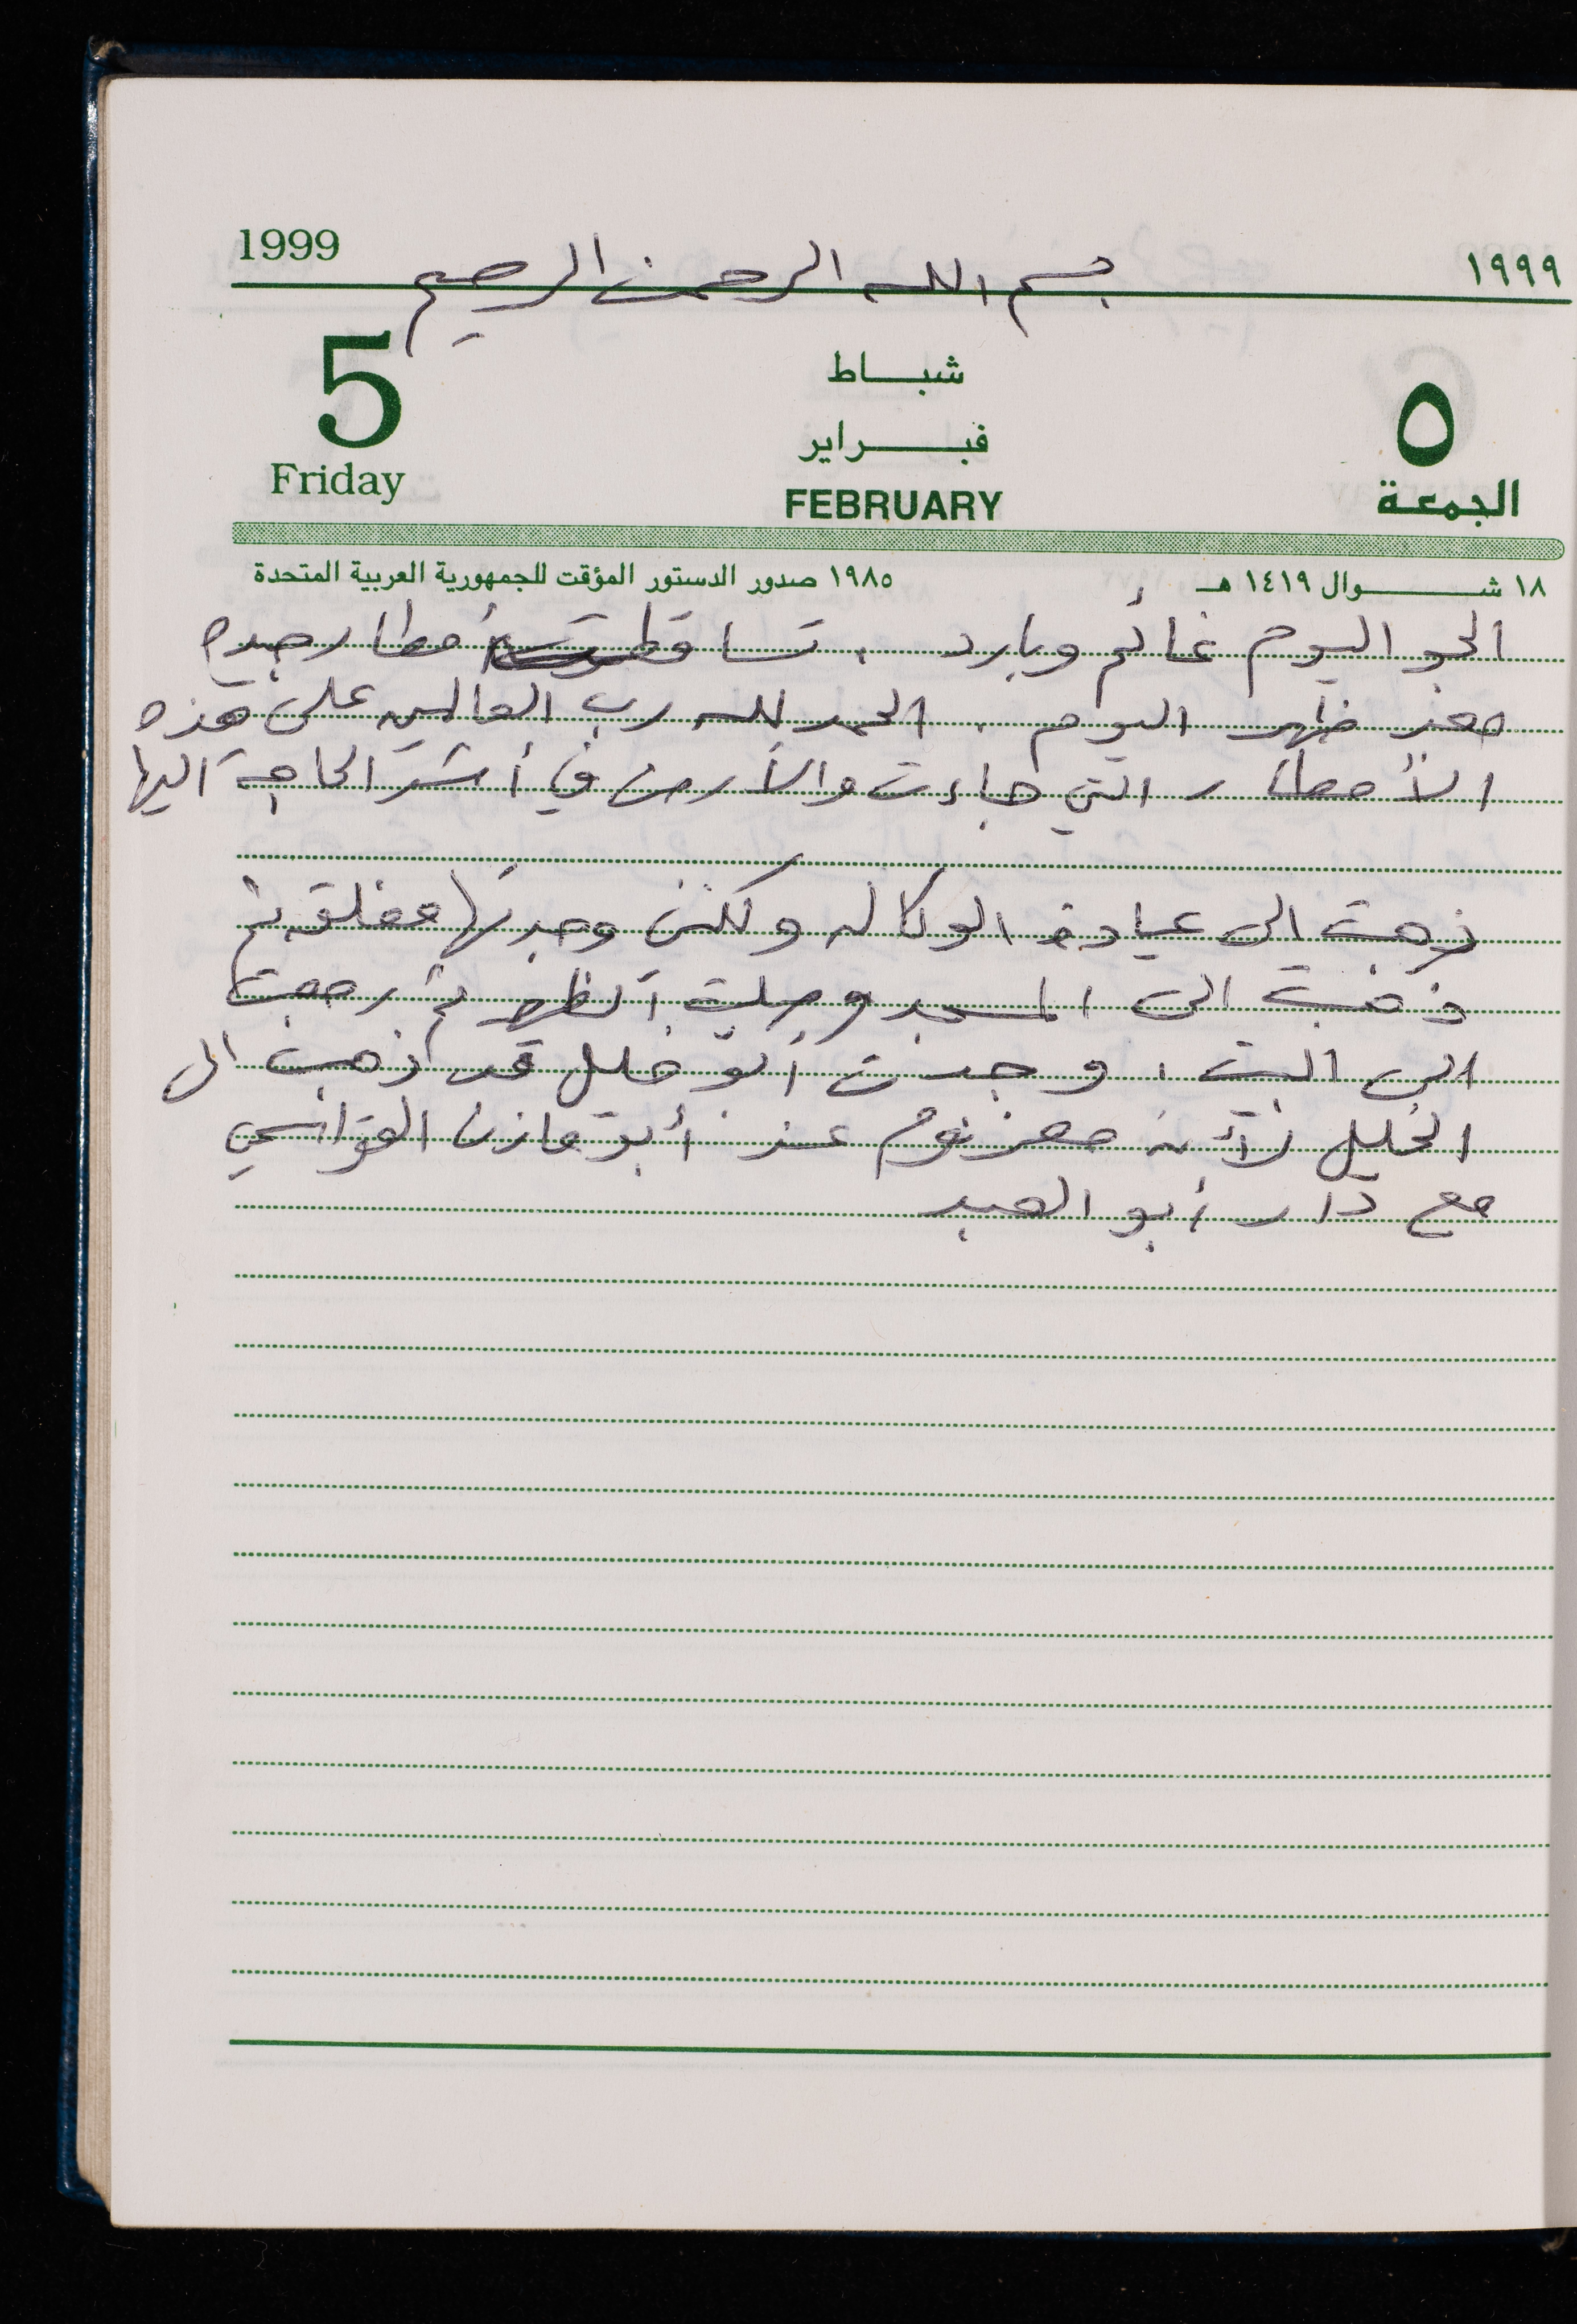 1999 بسم الله الرحمن الرحيم ١٩٩٩
5 شباط ٥
فبراير
Friday FEBRUARY الجمعة
١٨ شوال ١٤١٩ هـ ١٩٨٥ صدور الدستور المؤقت للجمهورية العربية المتحدة
الجو اليوم غائم وبارد . تساقطت أمطار جيده
معذ ظهر اليوم . الحمد لله رب العالمين على هذه
الأمطار التي جاءت والأرض في أشد الحاجة اليها
ذهبت الى عيادة الوكاله ولكنى وجدتها مغلقه ثم
ذهبت الى المسجد وصليت الظهر ثم رجعت
الى البيت . وجدت أبو خليل قد ذهب الى
الخليل معزوم عند أبو مازن القواسمي
مع دار أبو العبد